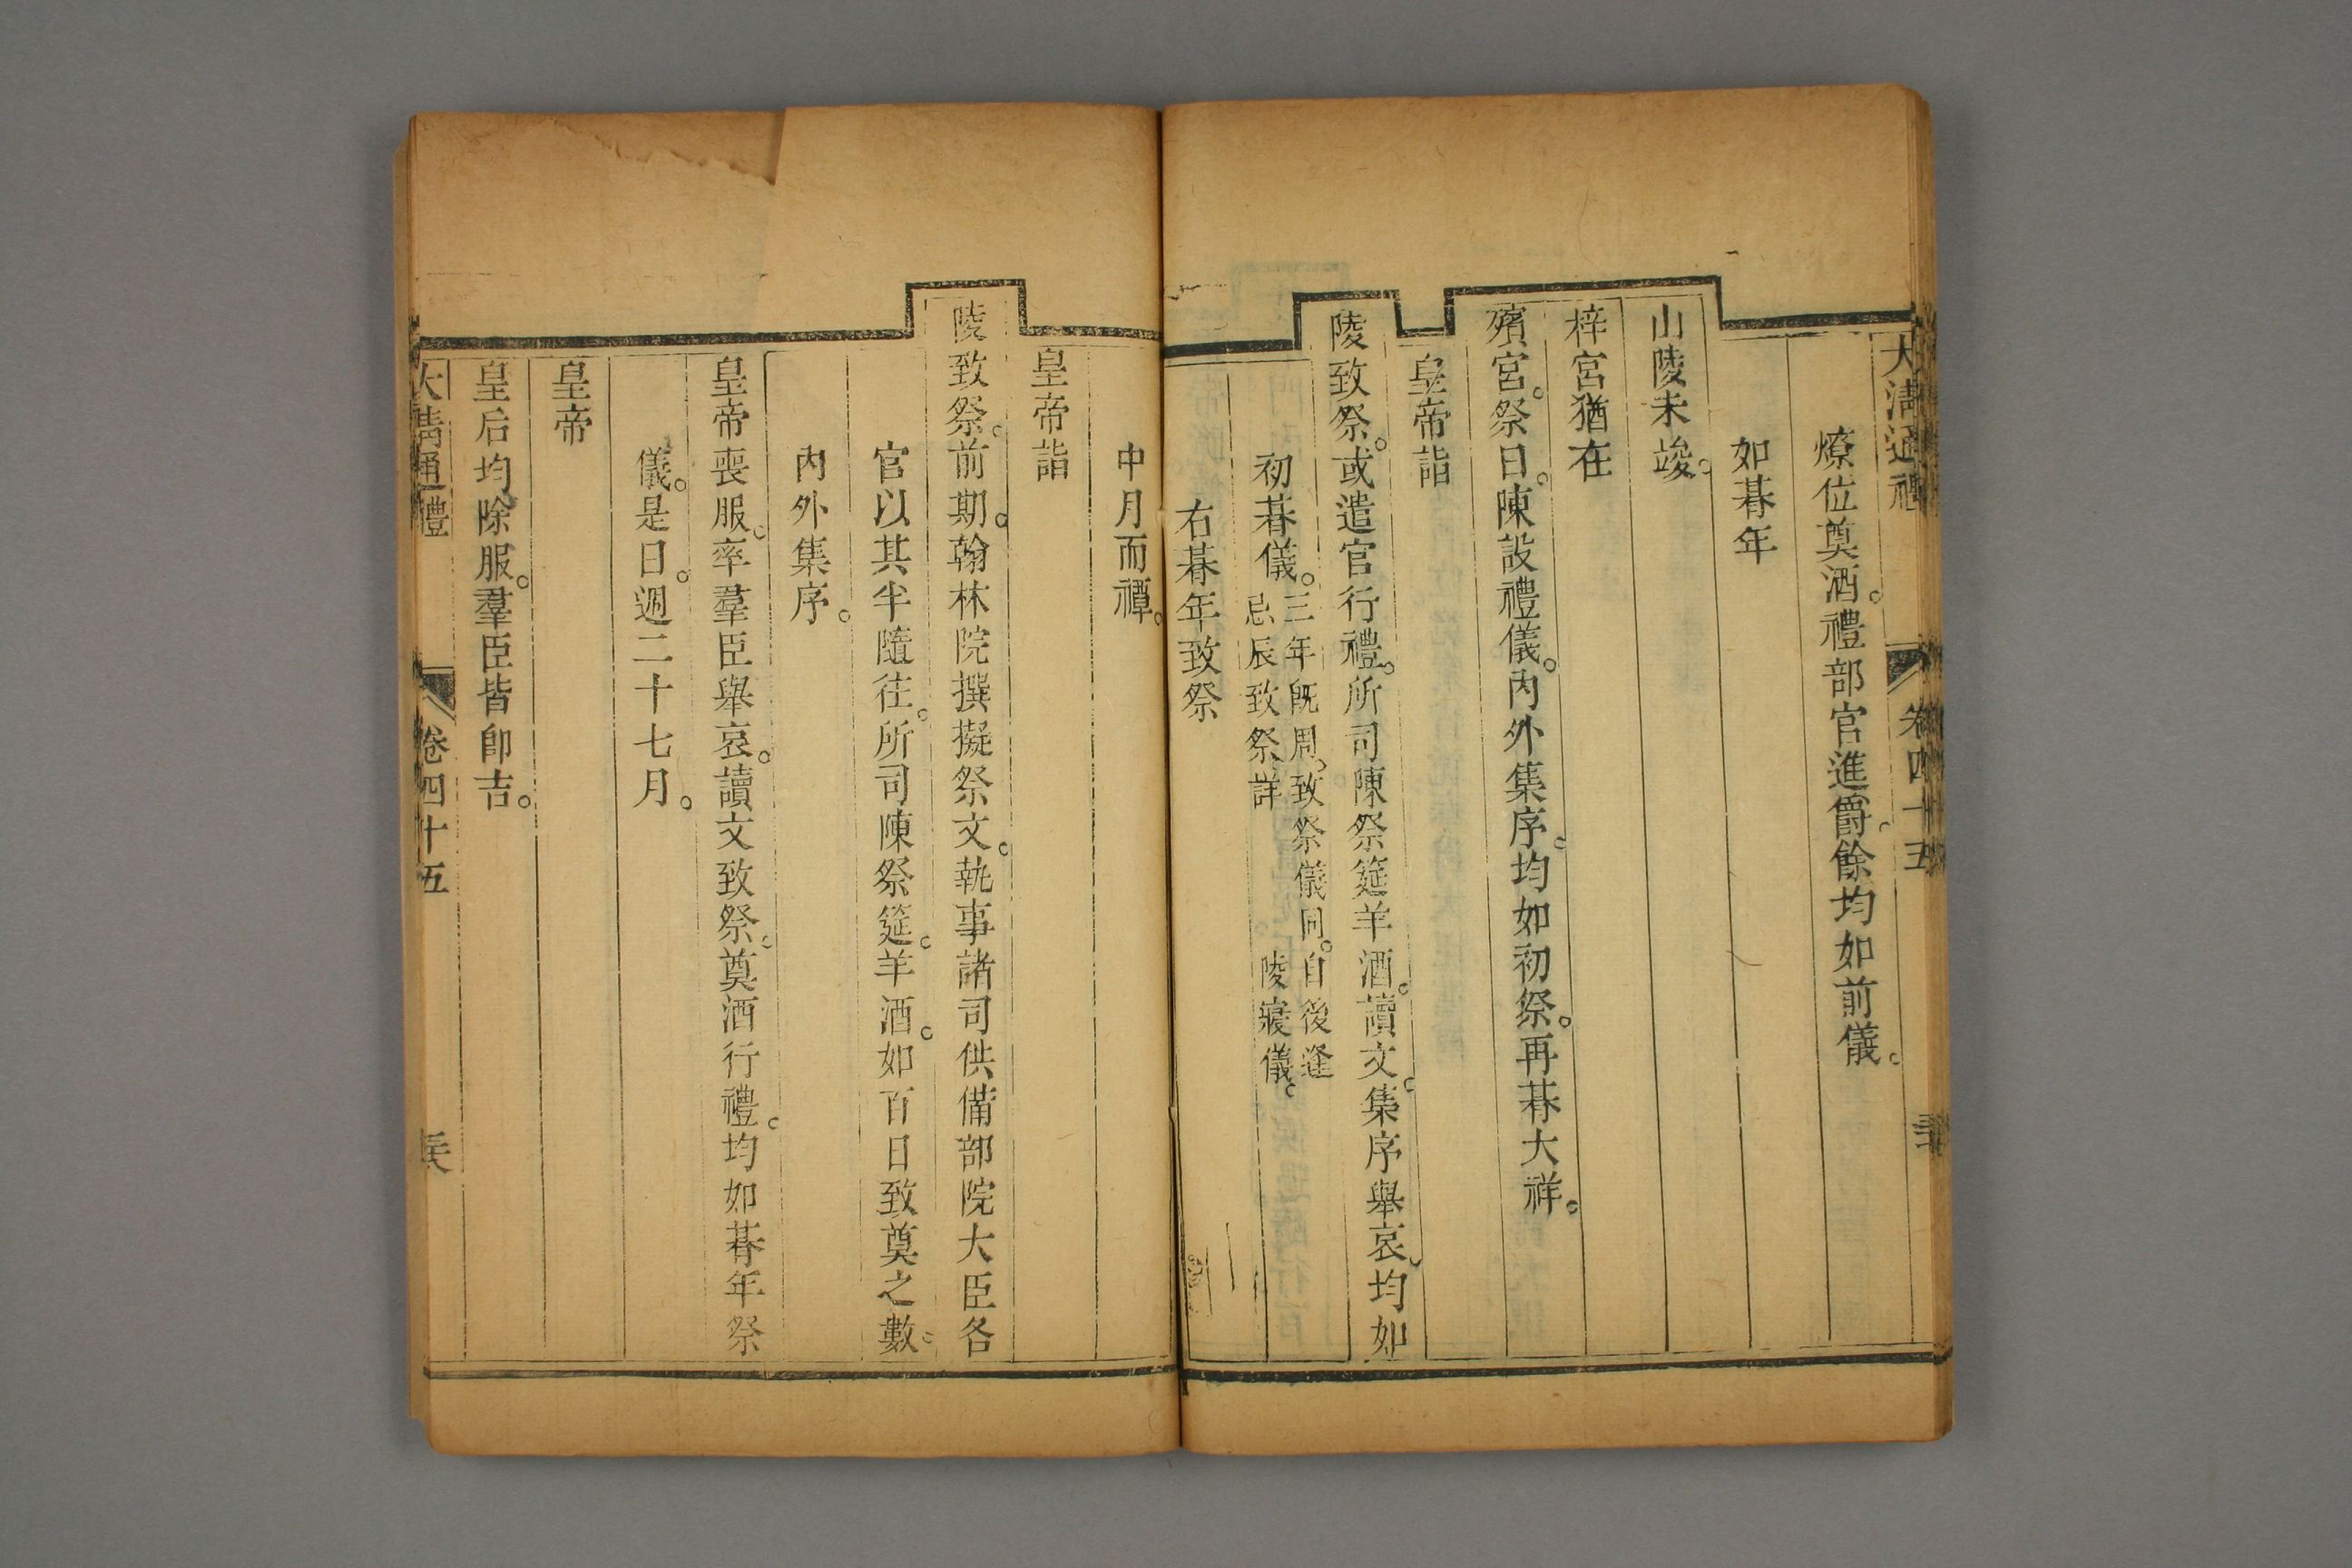 大清通禮 卷四十五
燎位奠酒。禮部官進爵。餘均如前儀。
如朞年
山陵未竣。
梓宮猶在
殯宮。祭日。陳設禮儀。內外集序。均如初祭。再朞大祥。
皇帝詣
陵致祭。或遣官行禮。所司陳祭筵羊酒。讀文。集序舉哀。均如
初朞儀。
三年旣周。致祭儀同。自後逢
忌辰致祭。詳 陵寢儀。
右朞年致祭
中月而禫。
皇帝詣
陵致祭。前期。翰林院撰擬祭文。執事諸司供備。部院大臣各
官以其半隨往。所司陳祭筵。羊酒。如百日致奠之數。
內外集序。
皇帝喪服。率羣臣舉哀。讀文致祭。奠酒行禮。均如朞年祭
儀。是日。週二十七月。
皇帝
皇后均除服。羣臣皆卽吉。
大淸通禮 卷四十五